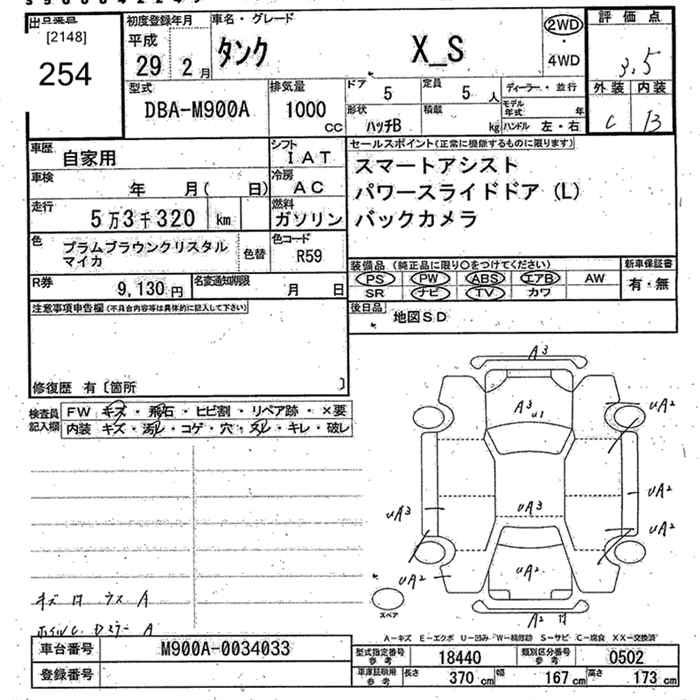 [2148]
254
初度登録年月
平成
29年 2月
車名・グレード
タンク X_S
2WD
4WD
評価点
3.5
外装 内装
C B
型式
DBA-M900A
排気量
1000
CC
ドア
5
定員
5人
形状
ハッチB
積載
kg
ディーラー・並行
モデル年式 年
ハンドル 左・右
車歴
自家用
シフト
IAT
車検
年 月( 日)
冷房
AC
走行
5万3千320 km
燃料
ガソリン
色
プラムブラウンクリスタル
マイカ
色替
色コード
R59
R券
9,130円
名変通知期限
月 日
セールスポイント(正常に機能するものに限ります)
スマートアシスト
パワースライドドア (L)
バックカメラ
装備品 (純正品に限り○をつけてください)
新車保証書
PS PW ABS エアB AW
SR ナビ TV カワ
有・無
後日品
地図SD
注意事項申告欄(不具合内容等は具体的に記入して下さい)
修復歴 有〔箇所 〕
検査員
記入欄
FW キズ・飛石・ヒビ割・リペア跡・×要
内装 キズ・汚れ・コゲ・穴・スレ・キレ・破レ
A3
A3
U1
UA2
UA2
UA3
UA3
UA2
UA2
UA2
A2
スペア
A
A
A-キズ E-エクボ U-凹み W-補修跡 S-サビ C-腐食 XX-交換済
車台番号
M900A-0034033
登録番号
型式指定番号
参考
18440
類別区分番号
参考
0502
車庫証明用
参考
長さ
370 cm
幅
167 cm
高さ
173 cm